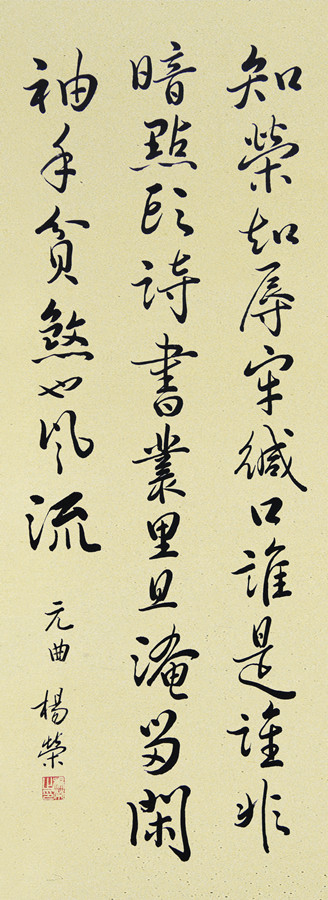 知榮知辱牢緘口誰是誰非
暗點頭詩書叢里且淹留閑
袖手貧煞也風流
元曲 楊榮